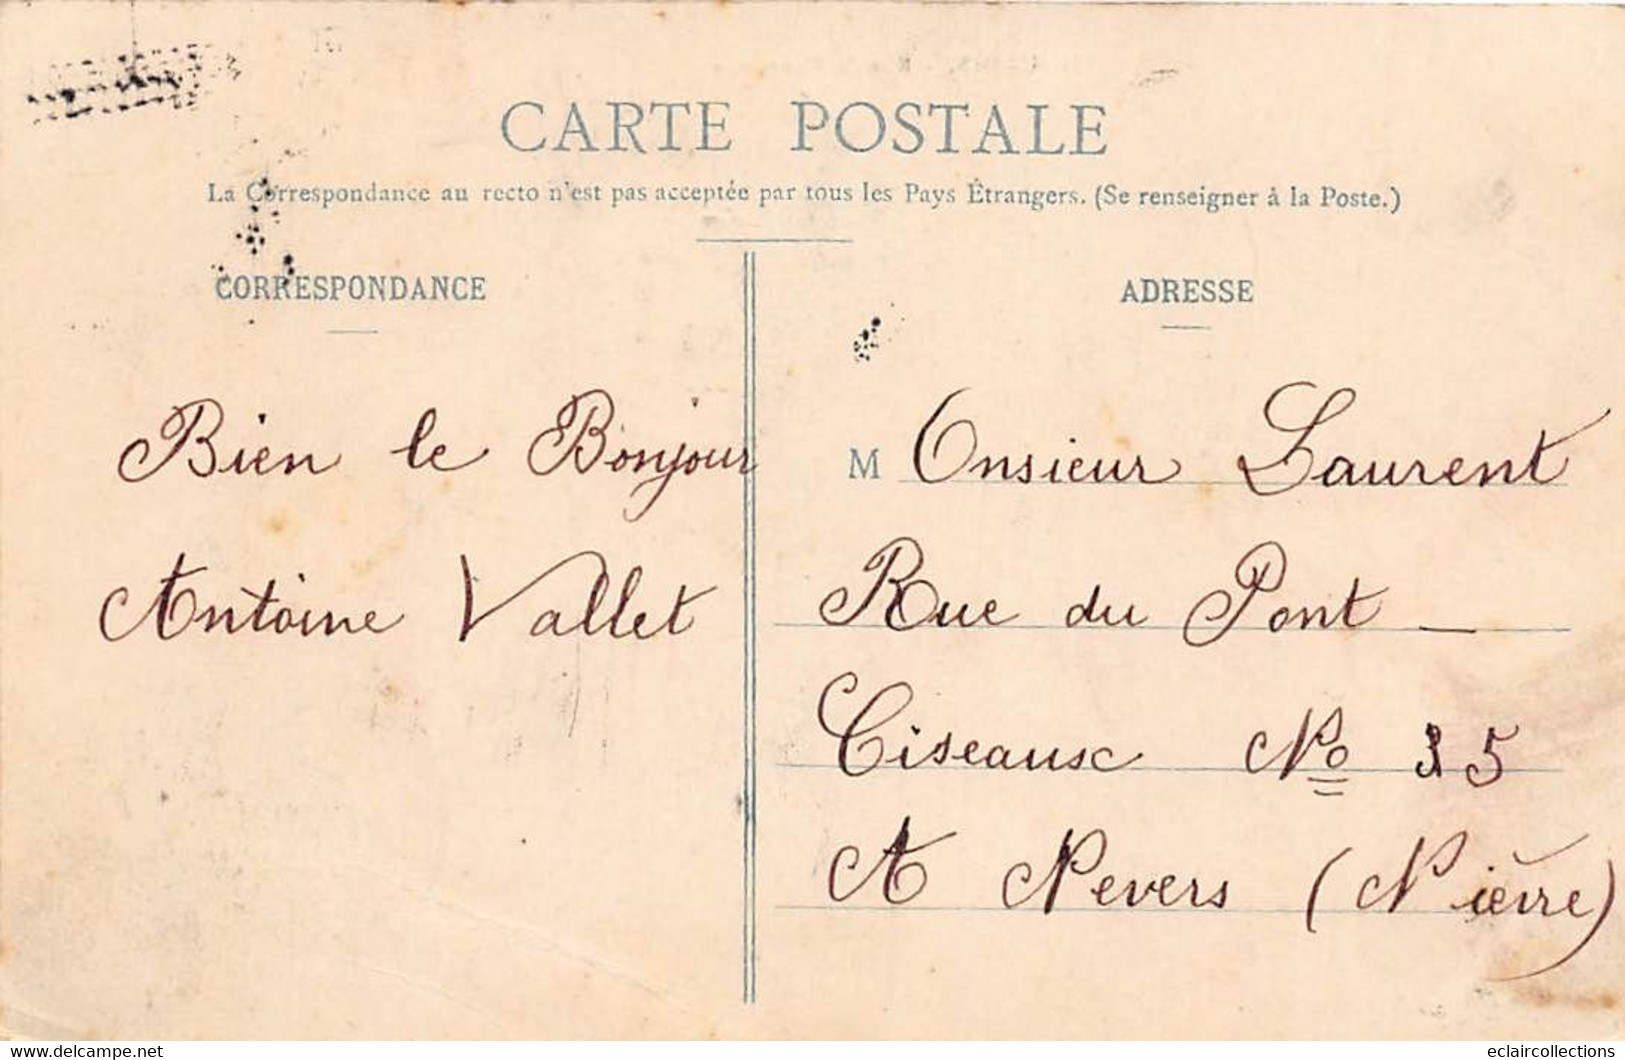 CARTE POSTALE
La Correspondance au recto n'est pas acceptée par tous les Pays Étrangers. (Se renseigner à la Poste.)
CORRESPONDANCE
Bien le Bonjour
Antoine Vallet
ADRESSE
Monsieur Laurent
Rue du Pont _
Ciseaux No 35
A Nevers (Nièvre)
www.delcampe.net
eclaircollections